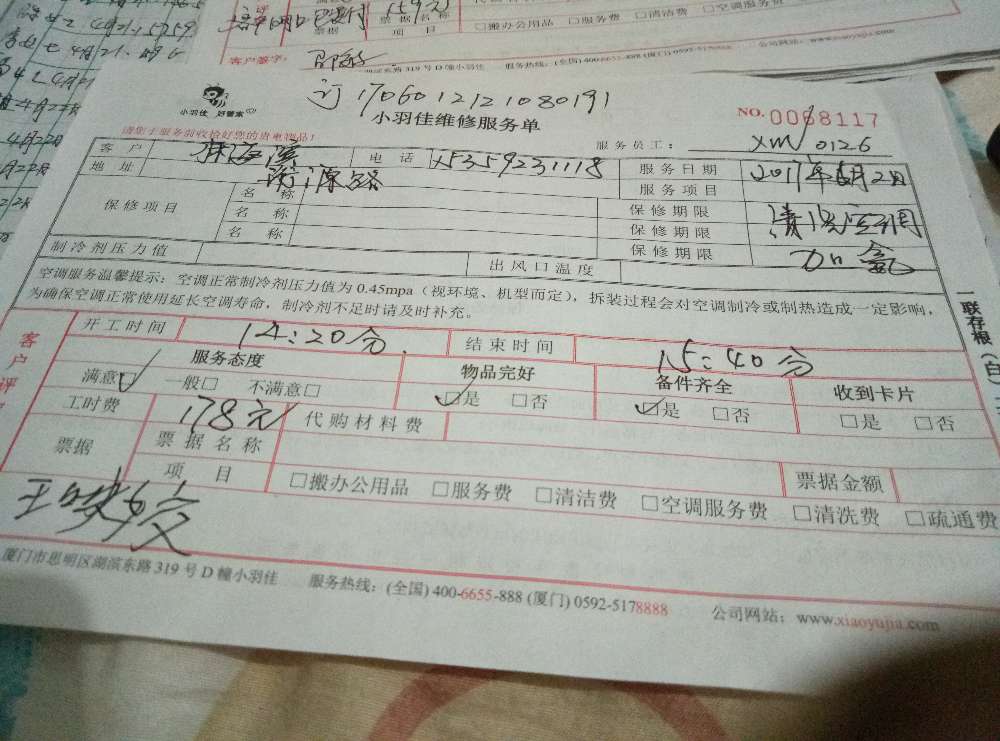 159元
票据名称
票据
项目
□搬办公用品 □服务费 □清洁费 □空调服务费
客户签字:
东路 319 号 D 幢小羽佳 服务热线:(全国) 400-6655-888 (厦门) 0592-5178888 公司网站:www.xiaoyujia.com
小羽佳 好管家
订 1706012121080191
小羽佳维修服务单
NO.0068117
请您于服务前收拾好您的贵重物品!
服务员工: XM 0126
客户
电话 15359231118
服务日期 2017年6月2日
地址
服务项目 清洗空调
加氟
保修项目
名称
保修期限
名称
保修期限
名称
保修期限
制冷剂压力值
出风口温度
空调服务温馨提示:空调正常制冷剂压力值为 0.45mpa(视环境、机型而定),拆装过程会对空调制冷或制热造成一定影响,
为确保空调正常使用延长空调寿命,制冷剂不足时请及时补充。
一联存根(白)
客户评
开工时间 14:20分
结束时间 15:40分
服务态度
物品完好
备件齐全
收到卡片
满意☑ 一般□ 不满意□
☑是 □否
☑是 □否
□是 □否
工时费 178元
代购材料费
票据
票据名称
票据金额
项目
□搬办公用品 □服务费 □清洁费 □空调服务费 □清洗费 □疏通费
厦门市思明区湖滨东路 319 号 D 幢小羽佳 服务热线:(全国) 400-6655-888 (厦门) 0592-5178888 公司网站:www.xiaoyujia.com